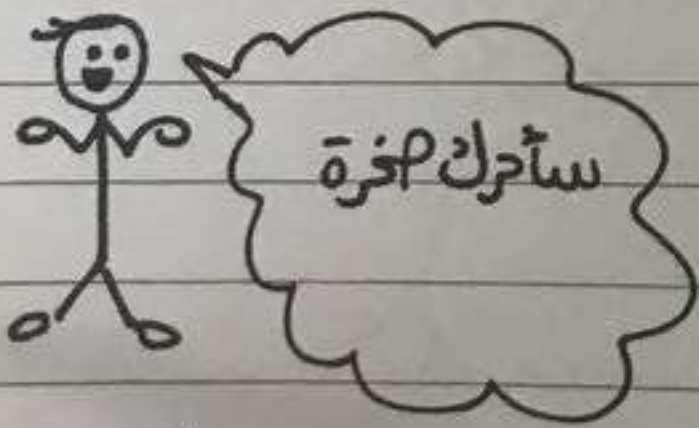 سأحرك صخرة